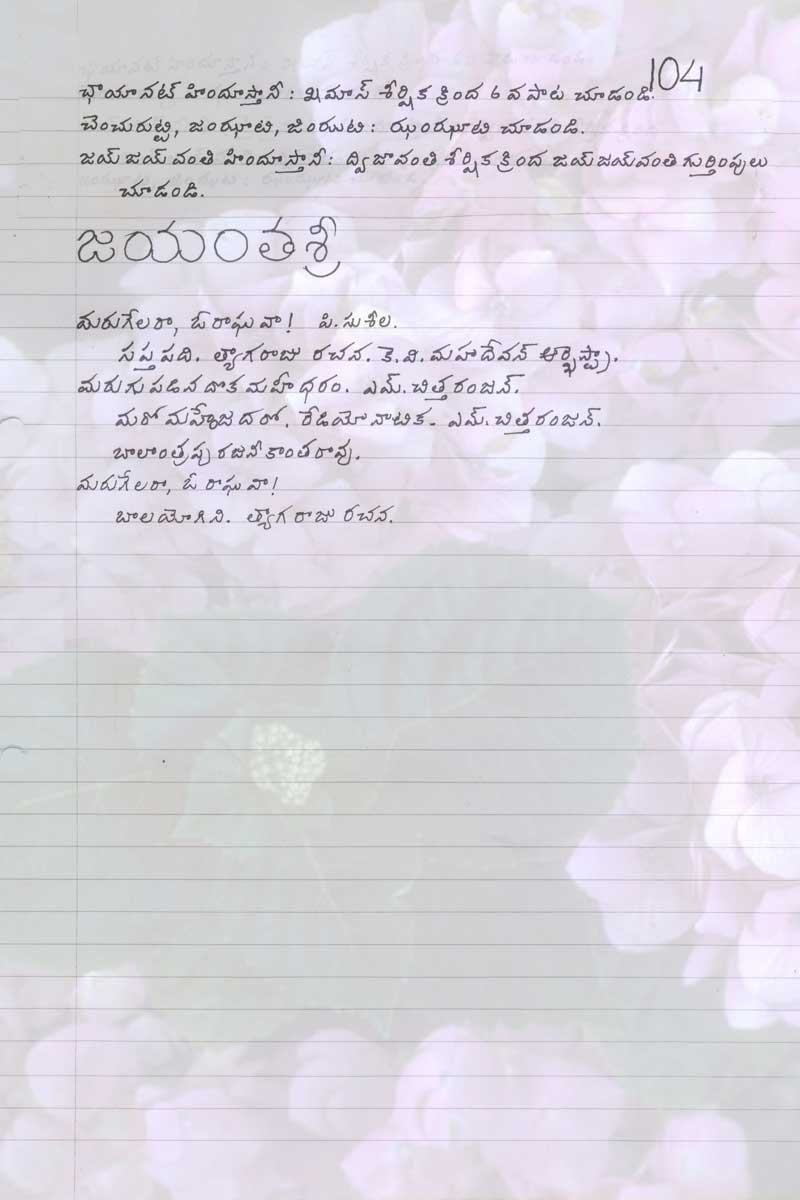 104
ఛాయానట్ హిందూస్తానీ : ఖమాస్ శీర్షిక క్రింద 6 వ పాట చూడండి.
చెంచురుట్టి, జంఝాటి, జింఝటి : ఝంఝూటి చూడండి.
జయ్ జయ్ వంతి హిందూస్తానీ : ద్విజావంతి శీర్షిక క్రింద జయ్ జయ్ వంతి గుర్తింపులు
చూడండి.
జయంతశ్రీ
మరుగేలరా, ఓ రాఘవా! పి. సుశీల.
సప్తపది. త్యాగరాజు రచన. కె. వి. మహాదేవన్ ఆర్కెస్ట్రా.
మరుగు పడినదొక మహీధరం. ఎమ్. చిత్తరంజన్.
మరో మహ్మెజదరో. రేడియో నాటిక. ఎమ్. చిత్తరంజన్.
బాలాంత్రపు రజనీకాంతరావు.
మరుగేలరా, ఓ రాఘవా!
బాలయోగిని. త్యాగరాజు రచన.